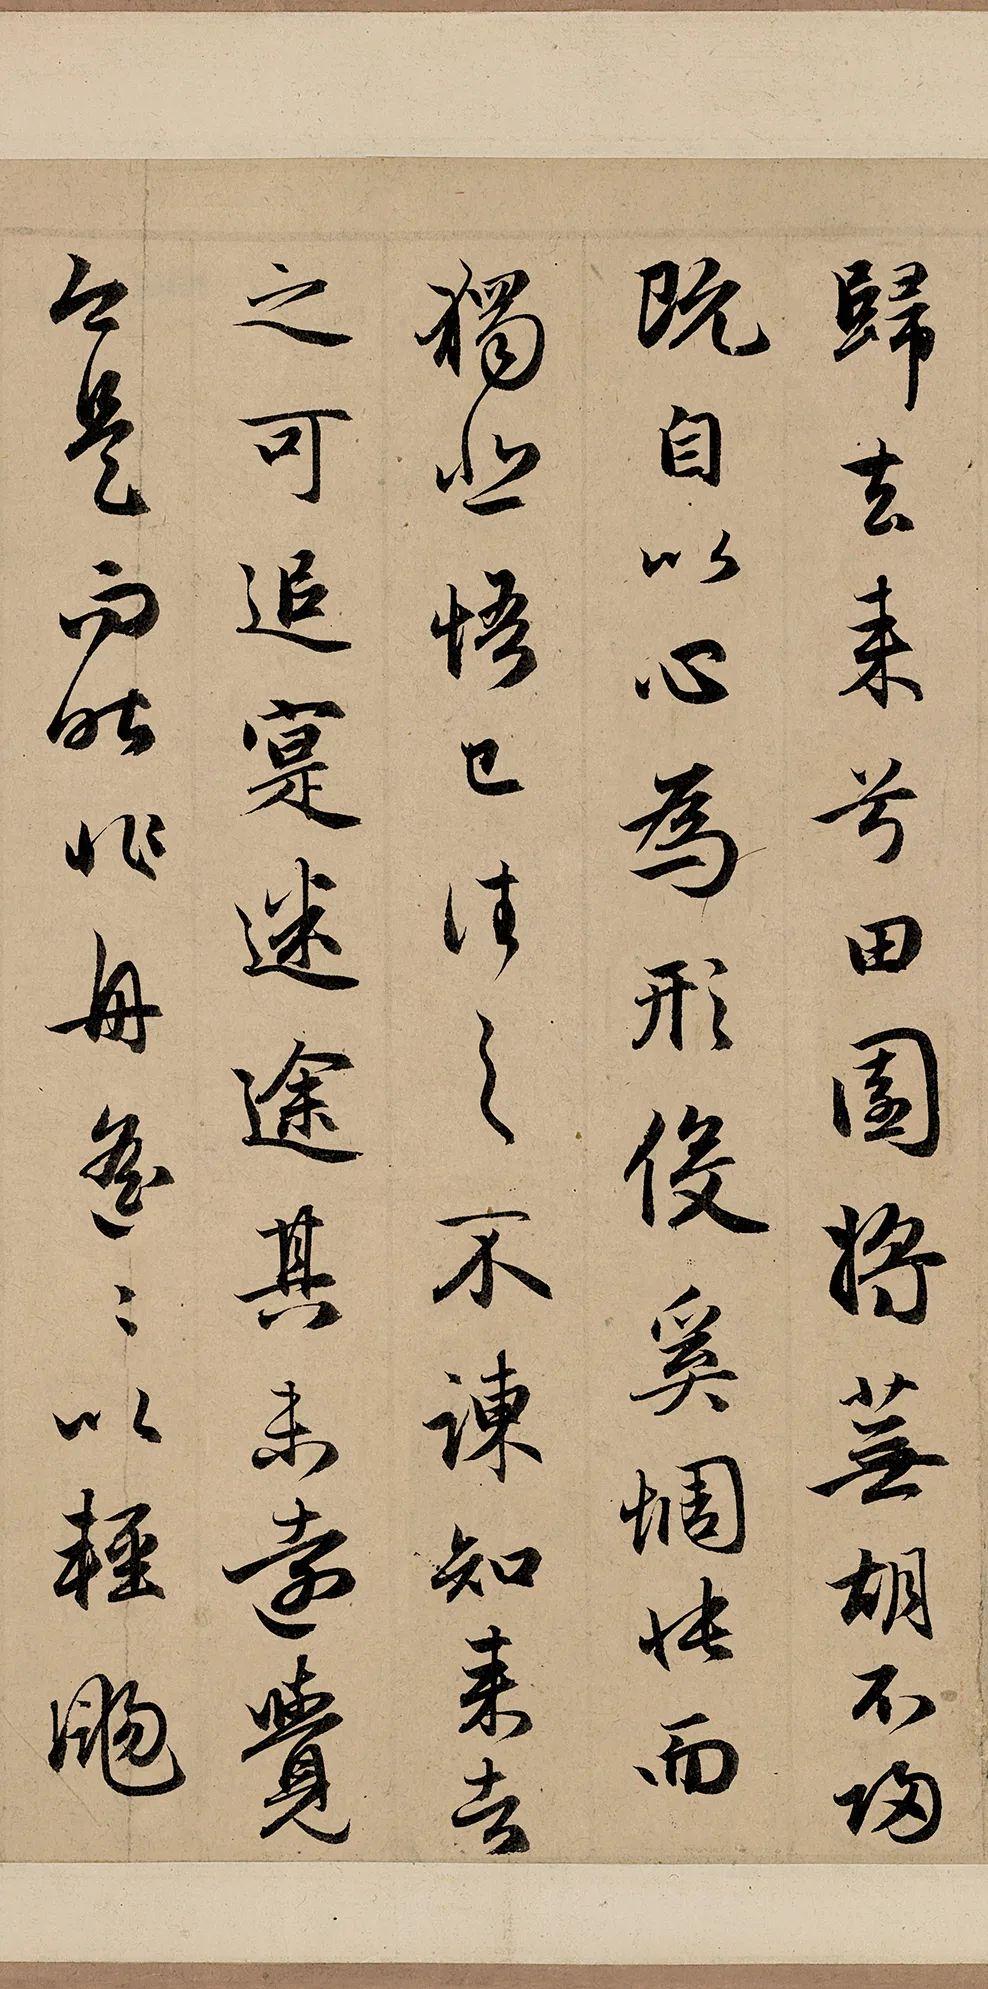 歸去来兮田園將蕪胡不歸
既自以心為形役奚惆悵而
獨悲悟已往之不諫知来者
之可追寔迷途其未遠覺
今是而昨非舟遙〻以輕颺